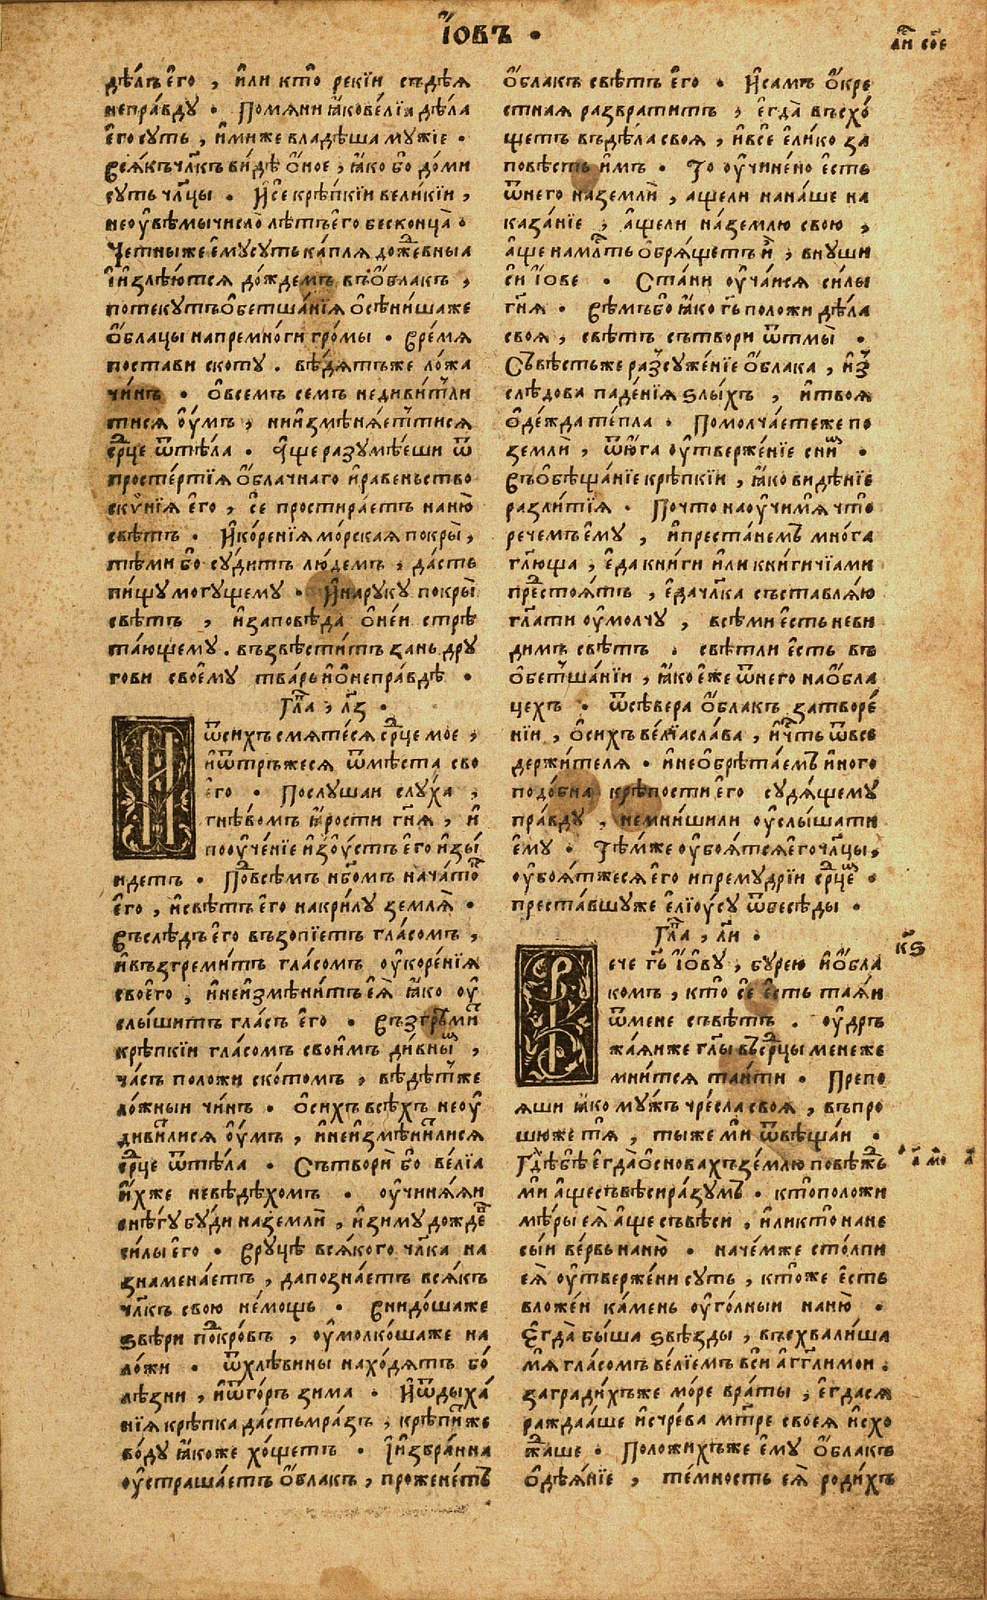 І҆́ѡвъ ·
дѣ́лъ є҆го̀ , и҆̀ли кто̀ рекі́и съдѣ́ѧ
непра́вду · Помѧнѝ ꙗ҆́ко ве́лїѧ дѣ́ла
є҆го̀ сꙋть , и҆́миже владѣ́ша мꙋ́жїе ·
Всѧ́къ чл҃къ ви́дѣ ѻ҆́ное , ꙗ҆́ко бо до́ми
сꙋть чл҃цы · И҆́се крѣ́пкїи вели́кїи ,
не ᲂу҆вѣ́мы число̀ лѣ́тъ є҆го̀ бесконца̀ ·
Че́тныже є҆мꙋ̀ сꙋть ка́плѧ дожде́вныѧ
и҆ и҆злѣ́ютсѧ до́ждемъ въ ѻ҆́блакъ ,
потекꙋ́тъ ѻ҆бетша́нїѧ ѻ҆сѣни́шаже
ѻ҆́блацы на премно́ги гро́мы · Вре́мѧ
поста́ви скотꙋ̀ . вѣ́дѧтъже ло́жа
чи́нъ · ѻ҆ всемъ семъ не диви́тлити
тисѧ ᲂу҆́мъ , ни и҆змѣнѧ́еттисѧ
ср҃це ѿ тѣ́ла · А҆́ще разꙋмѣ́еши ѿ
простр́тїѧ ѻ҆́блачнаго и҆ ра́веньство
ски́нїѧ є҆го̀ , сѐ простира́етъ на ню̀
свѣ́тъ · И҆ коре́нїѧ мо́рскаѧ покры̀ ,
тѣ́ми бо сꙋ́дитъ лю́демъ , да́сть
пи́щꙋ могꙋ́щемꙋ · И҆ на рꙋкꙋ̀ покры̀
свѣ́тъ , и҆ заповѣ́да ѻ҆ не́и стрѣ
та́ющемꙋ . възвѣсти́тъ за нь дрꙋ
гови своємꙋ̀ тва́рь и҆ ѻ҆ непра́вдѣ ·
Гл҃а , л҃з ·
П ѿ си́хъ смѧте́сѧ ср҃це моѐ ,
и҆ ѿтръ́жесѧ ѿ мѣ́ста сво
є҆го̀ · Послꙋ́шаи слꙋ́ха ,
гнѣ́вомъ ꙗ҆́рости гн҃ѧ , и҆
поᲂуче́нїе и҆з ᲂу҆́стъ є҆го̀ и҆зы́
идетъ · По всѣ́мъ нб҃омъ нача́то
є҆го̀ , и҆ свѣ́тъ є҆го̀ на кри́лꙋ землѧ̀ ·
Въслѣ́дъ є҆го̀ възопїе́тъ гла́сомъ ,
и҆ възгреми́тъ гла́сомъ ᲂу҆коре́нїѧ
своего̀ , и҆ не и҆змѣни́тъ є҆ѧ̀ ꙗ҆́ко ᲂу҆
слы́шитъ гла́съ є҆го̀ · Възгръми́т
крѣ́пкїи гла́сомъ свои́мъ ди́вны ,
ча́съ положи ско́томъ , вѣ́дѧтже
ло́жныи чи́нъ · ѻ҆ си́хъ всѣ́хъ не ᲂу҆
диви́лисѧ ᲂу҆́мъ , и҆ не и҆змѣни́лисѧ
ср҃це ѿ тѣ́ла · Сътворѝ бо ве́лїа
и҆́хже не вѣ́дѣхомъ · ᲂу҆чинѧ́ѧи
снѣ́гꙋ бꙋ́ди на землѝ , и҆ зи́мꙋ дожде
си́лы є҆го̀ · В рꙋцѣ̀ всѧ́кого чл҃ка на
знамена́етъ , да позна́етъ всѧ́къ
чл҃къ свою̀ не́мощь · Внидо́шаже
ѕвѣ́ри по́кровъ , ᲂу҆молко́шаже на
ло́жи · ѿ хлѣ́вины нахо́дѧтъ бо
лѣ́зни , и҆ ѿ го́ръ зима · И҆ ѿ дыха́
нїѧ крѣ́пка да́сть мра́зъ , крѣ́питже
во́дꙋ ꙗ҆́коже хо́щетъ · І҆ и҆збра́нна
ᲂу҆страша́етъ ѻ҆́блакъ , прожене́тъ
ѻ҆́блакъ свѣ́тъ є҆го̀ · И҆ самъ ѻ҆́кре
стнаѧ разврати́тъ , є҆гда̀ въсхо́
щетъ въ дѣ́ла своѧ̀ , и҆ всѐ є҆ли́ко за
повѣ́сть и҆̀мъ · То ᲂу҆чине́но є҆́сть
ѿ него̀ на землѝ , а҆́щели на на́ше на
каза́нїе , а҆́щели на зе́млю свою̀ ,
а҆́ще на мл҃ть ѻ҆брѧ́щетъ и҆̀ , внꙋши
сѝ і҆́ѡве · Ста́ни ᲂу҆ча́исѧ си́лы
гн҃ѧ · Вѣ́мъ бо ꙗ҆́ко гь҃ положи дѣ́ла
своѧ̀ , свѣ́тъ сътвори ѿ тмы̀ ·
Съвѣ́стьже разсꙋжде́нїе ѻ҆́блака , и҆з
слѣ́дова паде́нїѧ ѕлы́хъ , и҆ твоѧ̀
ѻ҆де́жда те́пла · Помолча́етеже по
землѝ , ѿ ю҆́га ᲂу҆твержде́нїе сни ·
Въ ѻ҆бѣща́нїе крѣ́пкїи , ꙗ҆́ко видѣ́нїе
разли́тїѧ · Почто наᲂучи́мѧ что̀
рече́мъ є҆мꙋ̀ , и҆ преста́немъ мно́га
гл҃юща , є҆да кни́ги и҆ли кни́гичїѧми
престоѧ́тъ , є҆да чл҃ка съставлѧ́ю
гл҃ати ᲂу҆молчꙋ̀ , всѣ́ми є҆́сть неви
димъ свѣ́тъ . свѣ́тли є҆́сть въ
ѻ҆бетша́нїи , ꙗ҆́ко є҆́же ѿ него̀ на ѻ҆бла
цехъ · ѿ сѣ́вера ѻ҆́блакъ затворе́
нїи , ѻ҆ си́хъ ве́лїа сла́ва , и҆ чть ѿ все
держи́телѧ · и҆ не ѻ҆брѣта́емъ и҆́ного
подо́бна крѣ́пости є҆го̀ сꙋдѧ́щемꙋ
пра́вдꙋ , не мни́шили ᲂу҆слы́шати
є҆мꙋ̀ · Тѣ́мже ᲂу҆боѧ́тсѧ є҆го̀ чл҃цы ,
ᲂу҆боѧ́тжесѧ є҆го̀ и҆ премꙋ́дрїи ср҃це ·
преста́вшꙋже є҆лїᲂу́сꙋ ѿ бесѣ́ды ·
Гл҃а , л҃и ·
Рече гь҃ і҆́ѡвꙋ , бꙋ́рею и҆ ѻ҆́бла
комъ , кто̀ сѐ є҆́сть таѧ́и
ѿ мене съвѣ́тъ . ᲂу҆дръ
жа́ѧиже гл҃ы въ ср҃цы менеже
мни́тсѧ таи́ти · Препо
ѧши ꙗ҆́ко мꙋ́жъ чре́сла своѧ̀ , въпро
шюже тѧ̀ , ты́же ми ѿвѣща́и ·
Гдѣ бѣ̀ є҆гда̀ ѻ҆снова́хъ зе́млю повѣ́жь
ми а҆́ще съвѣ́си ра́зꙋмъ · кто̀ положи
мѣ́ры є҆ѧ̀ а҆́ще съвѣ́си , и҆ли кто̀ нане
сы́и ве́рвь на ню̀ · на че́мже сто́лпи
є҆ѧ̀ ᲂу҆твержде́ни сꙋть , кто́же є҆́сть
вложе́и ка́мень ᲂу҆го́лныи на ню̀ ·
Є҆гда̀ бы́ша ѕвѣ́зды , въсхвали́ша
мѧ̀ гла́сомъ ве́лїемъ всѝ а҆гг҃ли мои .
загради́хъже мо́ре враты̀ , є҆гда сѧ
ражда́аше и҆ счре́ва мт҃ре своеѧ̀ и҆схо
жда́ше · Положи́хъже є҆мꙋ̀ ѻ҆́блакъ
ѻ҆дѣѧ́нїе , те́мность є҆ѧ̀ роди́хъ
к҃ѕ